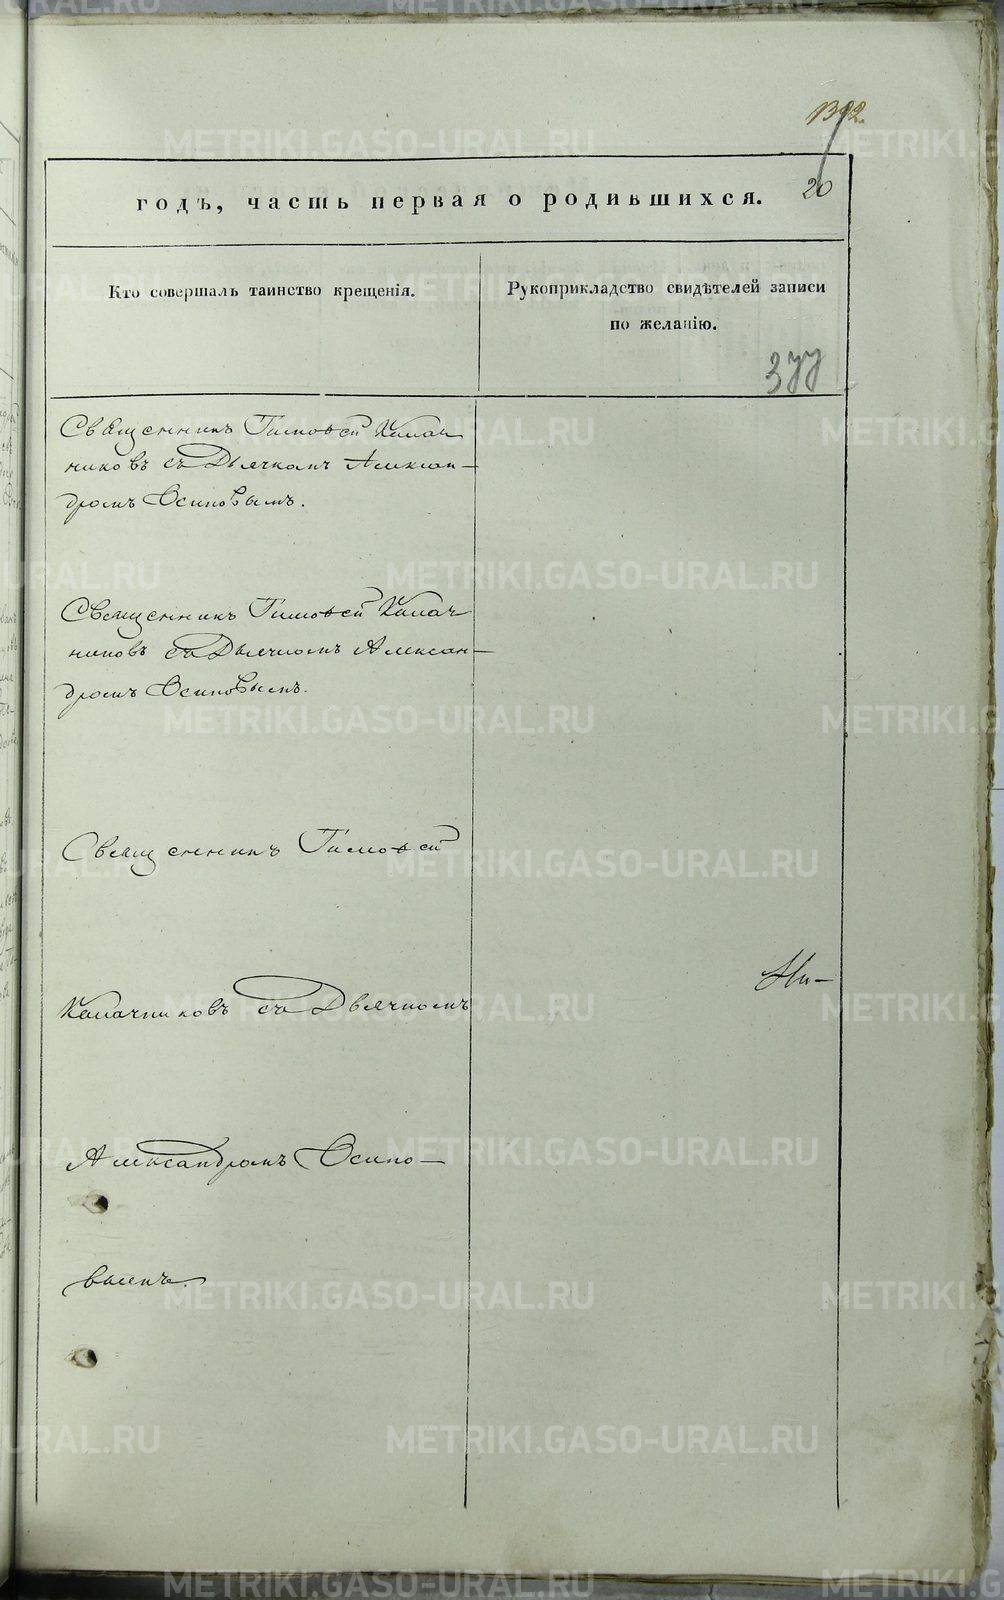 1392.
20
годъ, часть первая о родившихся.
Кто совершалъ таинство крещенія.
Рукоприкладство свидѣтелей записи
по желанію.
377
Священникъ Тимоѳей Калач
никовъ съ Дьячкомъ Алексан-
дромъ Осиповымъ.
Священникъ Тимоѳей Калач
никовъ съ Дьячкомъ Алексан-
дромъ Осиповымъ.
Священникъ Тимоѳей
Ни-
Калачниковъ съ Дьячкомъ
Александромъ Осипо-
вымъ.
METRIKI.GASO-URAL.RU